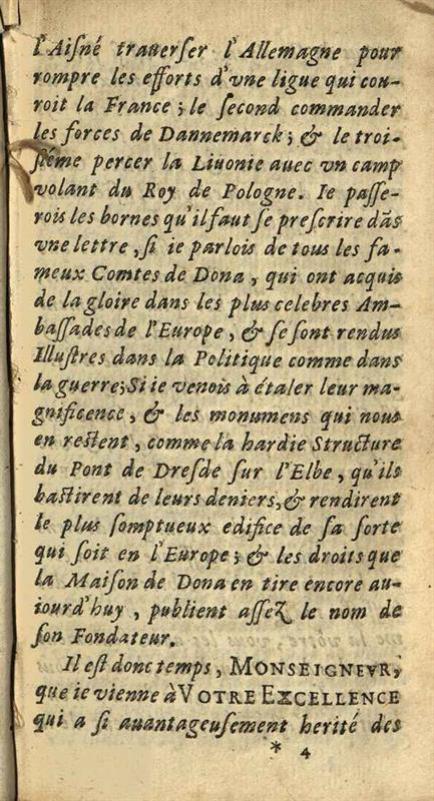 l'Aiſné trauerſer l'Allemagne pour
rompre les efforts d'vne ligue qui cou-
roit la France; le ſecond commander
les forces de Dannemarck; & le troi-
ſiéme percer la Liuonie auec vn camp
volant du Roy de Pologne. Ie paſſe-
rois les bornes qu'il faut ſe preſcrire dãs
vne lettre, ſi ie parlois de tous les fa-
meux Comtes de Dona, qui ont acquis
de la gloire dans les plus celebres Am-
baſſades de l'Europe, & ſe ſont rendus
Illuſtres dans la Politique comme dans
la guerre; Si ie venois à étaler leur ma-
gnificence, & les monumens qui nous
en reſtent, comme la hardie Structure
du Pont de Dreſde ſur l'Elbe, qu'ils
baſtirent de leurs deniers, & rendirent
le plus ſomptueux edifice de ſa ſorte
qui ſoit en l'Europe; & les droits que
la Maiſon de Dona en tire encore au-
iourd'huy, publient aſſeZ le nom de
ſon Fondateur.
Il eſt donc temps, MONSEIGNEVR,
que ie vienne à VOTRE EXCELLENCE
qui a ſi auantageuſement herité des
* 4